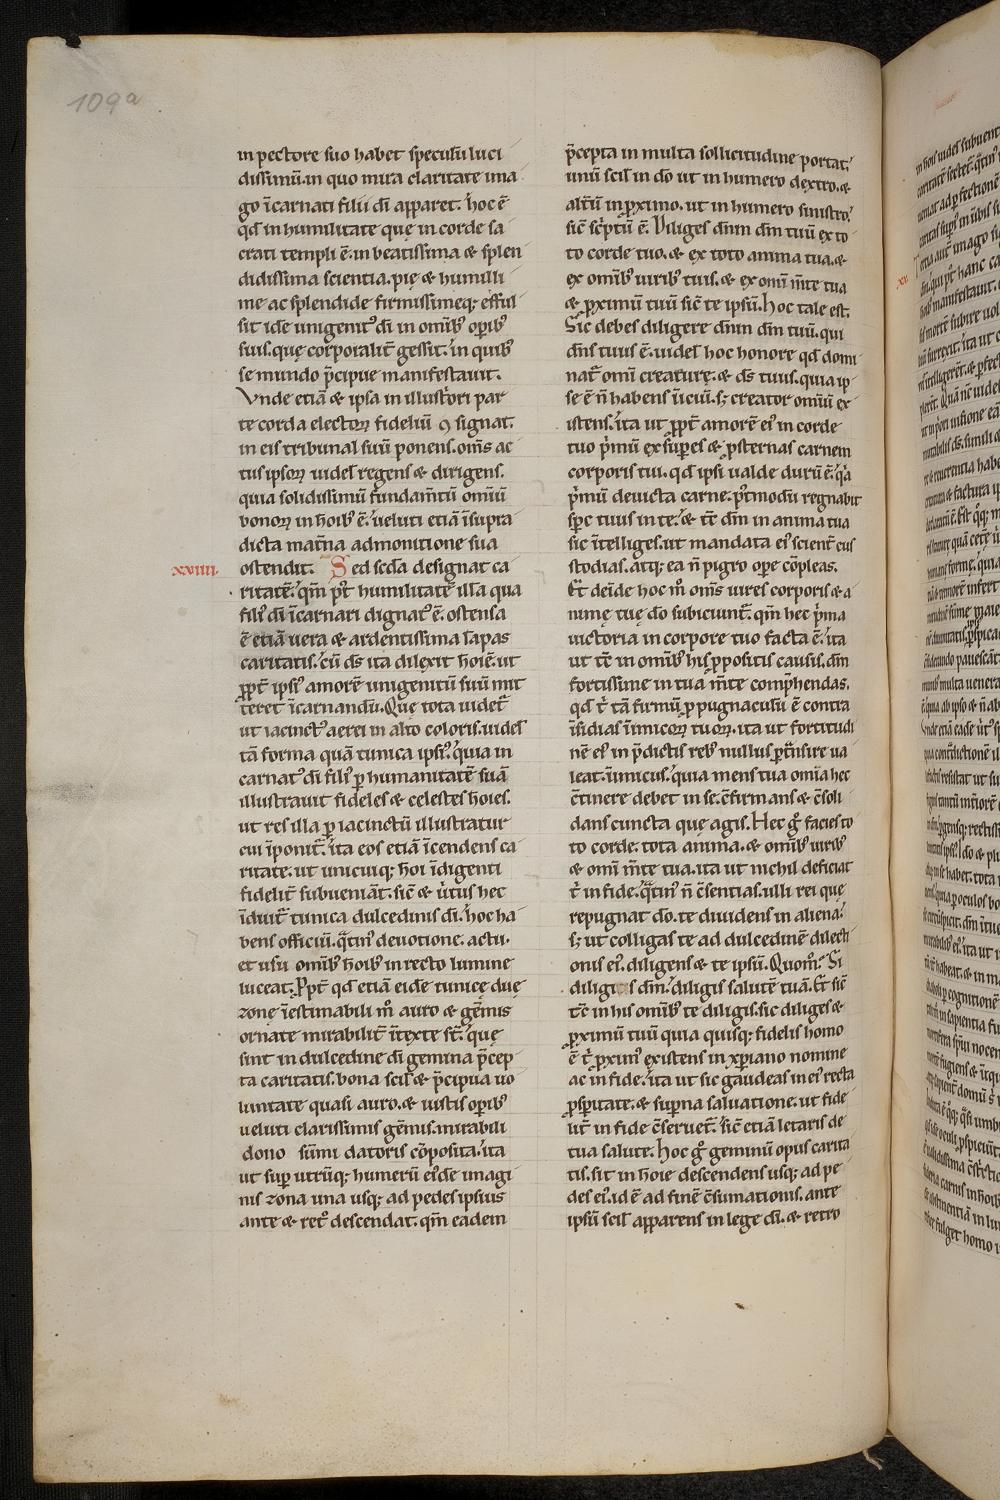 109a
in pectore suo habet speculū luci
dissimū. in quo mira claritate ima
go īcarnati filii dī apparet. hoc ē
qd̄ in humilitate quę in corde sa
crati templi ē. in beatissima & splen
didissima scientia. pię & humilli
me ac splendide firmissimeq; efful
sit idē unigenitꝰ dī in omīb; opib;
suis. quę corporalit̄ gessit. in quib;
se mundo p̄cipue manifestauit.
Vnde etiā & ipsa in illustiori par
te corda electoꝝ fideliū ꝯsignat.
in eis tribunal suū ponens. om̄s ac
tus ipsoꝝ uidel̄ regens & dirigens.
quia solidissimū fundam̄tū omiū
bonoꝝ in hoib; ē. ueluti etiā īsupra
dicta mat̄na admonitione sua
xxiiii.
ostendit. Sed scd̄a designat ca
ritatē. qm̄ p̄t humilitatē illa qua
filiꝰ dī īcarnari dignatꝰ ē. ostensa
ē etiā uera & ardentissima lāpas
caritatis. cū ds̄ ita dilexit hoiē. ut
ꝓpt̄ ipsiꝰ amorē unigenitū suū mit
teret īcarnandū. Quę tota uidet̄
ut iacinctꝰ aerei in alto coloris. uidel̄
tā forma quā tunica ipsiꝰ. quia in
carnatꝰ dī filiꝰ ꝑ humanitatē suā
illustrauit fideles & celestes hoies.
ut res illa ꝑ iacinctū illustratur
cui īponit̄. ita eos etiā īcendens ca
ritate. ut unicuiq; hoi īdigenti
fidelit̄ subueniāt. sic̄ & ūtus hec
īduit̄ tunica dulcedinis dī. hoc ha
bens officiū. q̄tinꝰ deuotione. actu.
et usu omīb; hoib; in recto lumine
luceat. Ppt̄ qd̄ etiā eidē tunicę duę
zonę īestimabili mō auro & gēmis
ornate mirabilit̄ ītexte st̄. quę
sint in dulcedine dī gemina p̄cep
ta caritatis. bona scil̄ & p̄cipua uo
luntate quasi auro. & iustis opib;
ueluti clarissimis gēmis. mirabili
dono sūmi datoris cōposita. ita
ut sup utrūq; humerū eidē imagi
nis zona una usq; ad pedes ipsius
ante & retͦ descendat. qm̄ eadem
p̄cepta in multa sollicitudine portat.
unū scil̄ in dō ut in humero dextro. &
altū in ꝓximo. ut in humero sinistro.
sic̄ sc̄ptū ē. Diliges dn̄m dm̄ tuū ex to
to corde tuo. & ex tota anima tua. &
ex omīb; uirib; tuis. & ex omī m̄te tua
& ꝓximū tuū sic̄ te ipsū. hoc tale est.
Sic debes diligere dn̄m dm̄ tuū. qui
dn̄s tuus ē. uidel̄ hoc honore qd̄ domi
nat̄ omī creaturę. & ds̄ tuus. quia ip
se ē n̄ habens iiciū. s; creator omiū ex
istens. ita ut ꝓpt̄ amorē eiꝰ in corde
tuo p̄mū exsupes & ꝓsternas carnem
corporis tui. qd̄ ipsi ualde durū ē. q̄a
p̄mū deuicta carne. p̄tmodū regnabit
spc̄ tuus in te. & tc̄ dm̄ in anima tua
sic ītelliges. ut mandata eiꝰ scient̄ cus
stodias. atq; ea n̄ pigro ope cōpleas.
Et deīde hoc mͦ om̄s uires corporis & a
nimę tuę dō subiciunt̄. qm̄ hec p̄ma
uictoria in corpore tuo facta ē. ita
ut tc̄ in omīb; his ꝓpositis causis. dm̄
fortissime in tua m̄te comp̄hendas.
qd̄ t̄ tā firmū ꝓpugnaculū ē contra
īsidias īmicoꝝ tuoꝝ. ita ut fortitudi
nē eiꝰ in p̄dictis reb; nullus pt̄nsire ua
leat. īimicus. quia mens tua omīa hec
c̄tinere debet in se. c̄firmans & c̄soli
dans cuncta que agis. Hec g̊ facies to
to corde. tota anima. & omīb; uirib;
& omī m̄te tua. ita ut nichil deficiat
t̄ in fide. q̄tinꝰ n̄ c̄sentias. ulli rei quę
repugnat dō. te diuidens in aliena.
s; ut colligas te ad dulcedinē dilecti
onis eiꝰ. diligens & te ipsū. Quomͦ. Si
diligis dm̄. diligis salutē tuā. Et sic̄
tc̄ in his omīb; te diligis. sic diliges &
ꝓximū tuū quia quisq; fidelis homo
ē t̄ ꝓximꝰ existens in xp̄iano nomine
ac in fide. ita ut sic gaudeas in eiꝰ recta
ꝓspitate. & supna saluatione. ut fide
lit̄ in fide c̄seruet̄. sic̄ etiā letaris de
tua salute. Hoc g̊ geminū opus carita
tis. sit in hoie descendens usq; ad pe
des eiꝰ. id ē ad finē c̄sumationis. ante
ipsū scil̄ apparens in lege dī. & retro